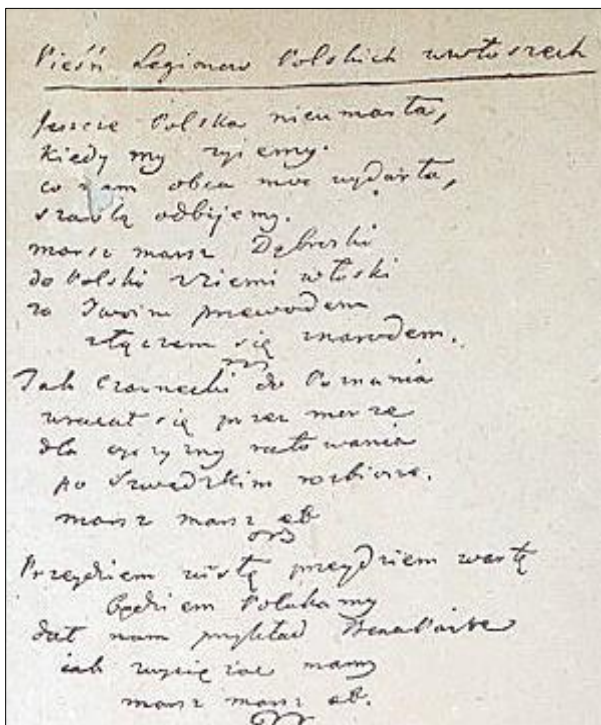 Pieśń Legionow Polskich wewłoszech
Jeszcze Polska nieumarła,
kiedy my żyiemy.
co nam obca moc wydarła,
szablą odbijemy.
marsz marsz Dąbroski
do Polski zziemi włoski
za Twoim przewodem
złączem się znarodem.
Jak Czarnecki do Poznania
wracał się przez morze
dla oyczyzny ratowania
po Szwedzkim rozbiorze.
marsz marsz etc
Przeydziem wisłę przeydziem wartę
będziem Polakamy
dał nam przykład Bonaparte
iak zwyciężac mamy
marsz marsz etc.